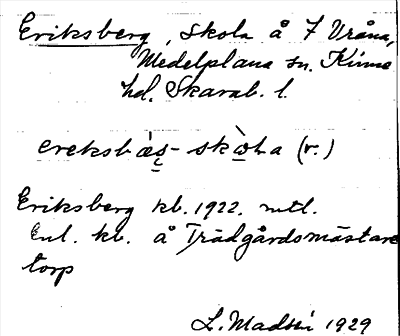 Eriksberg, skola å 7 Vråna,
Medelplana sn. Kinne
hd. Skarab. l.
ereksbæs- skola (r.)
Eriksberg kb. 1922. mtl.
Enl. kb. å Trädgårdsmästare
torp
L. Madsén 1929